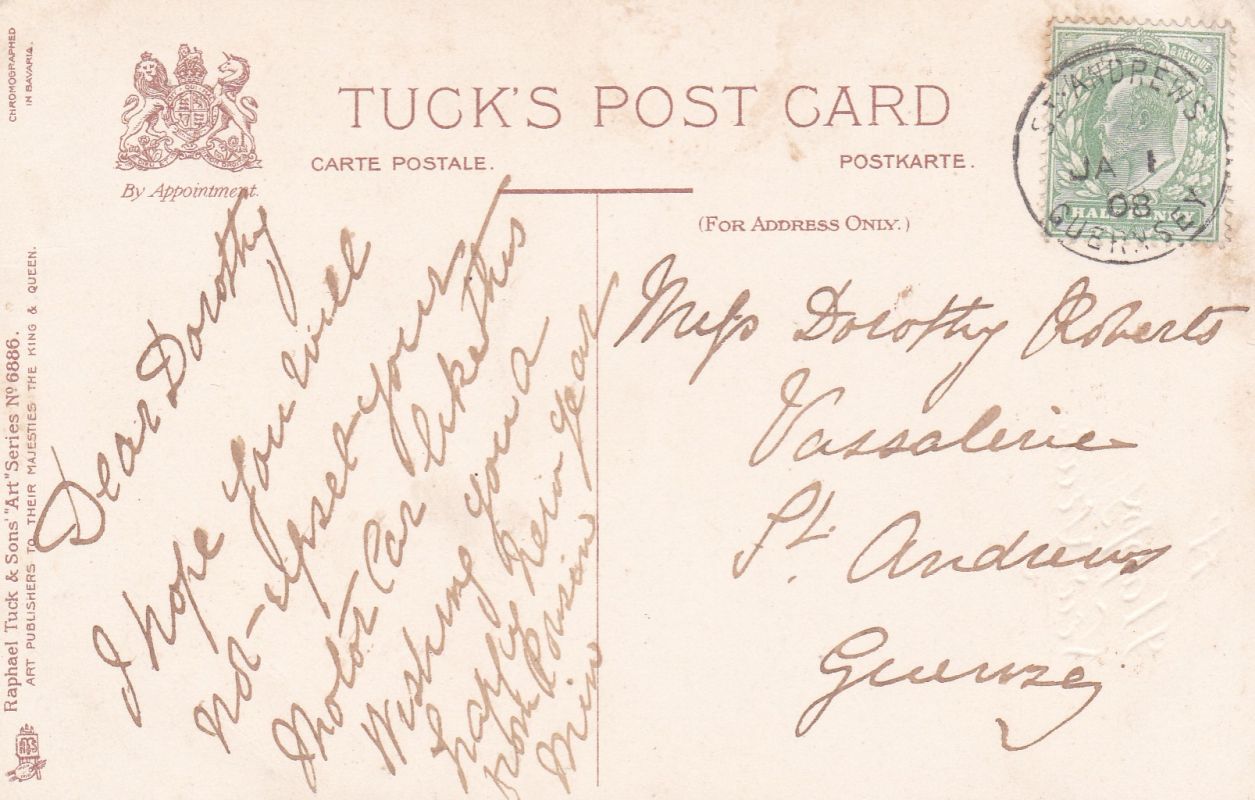 CHROMOGRAPHED
IN BAVARIA.
Raphael Tuck & Sons' "Art" Series Nº 6886.
ART PUBLISHERS TO THEIR MAJESTIES THE KING & QUEEN.
By Appointment.
TUCK'S POST CARD
CARTE POSTALE.
POSTKARTE.
(FOR ADDRESS ONLY.)
& REVENUE
HALFPENNY
ST. ANDREWS
JA 1
08
GUERNSEY
Dear Dorothy
I hope you will
not upset your
Motor Car like this
Wishing you a
happy New Year
from Cousin
Min
Miss Dorothy Roberts
Vassalerie
St. Andrews
Guernsey